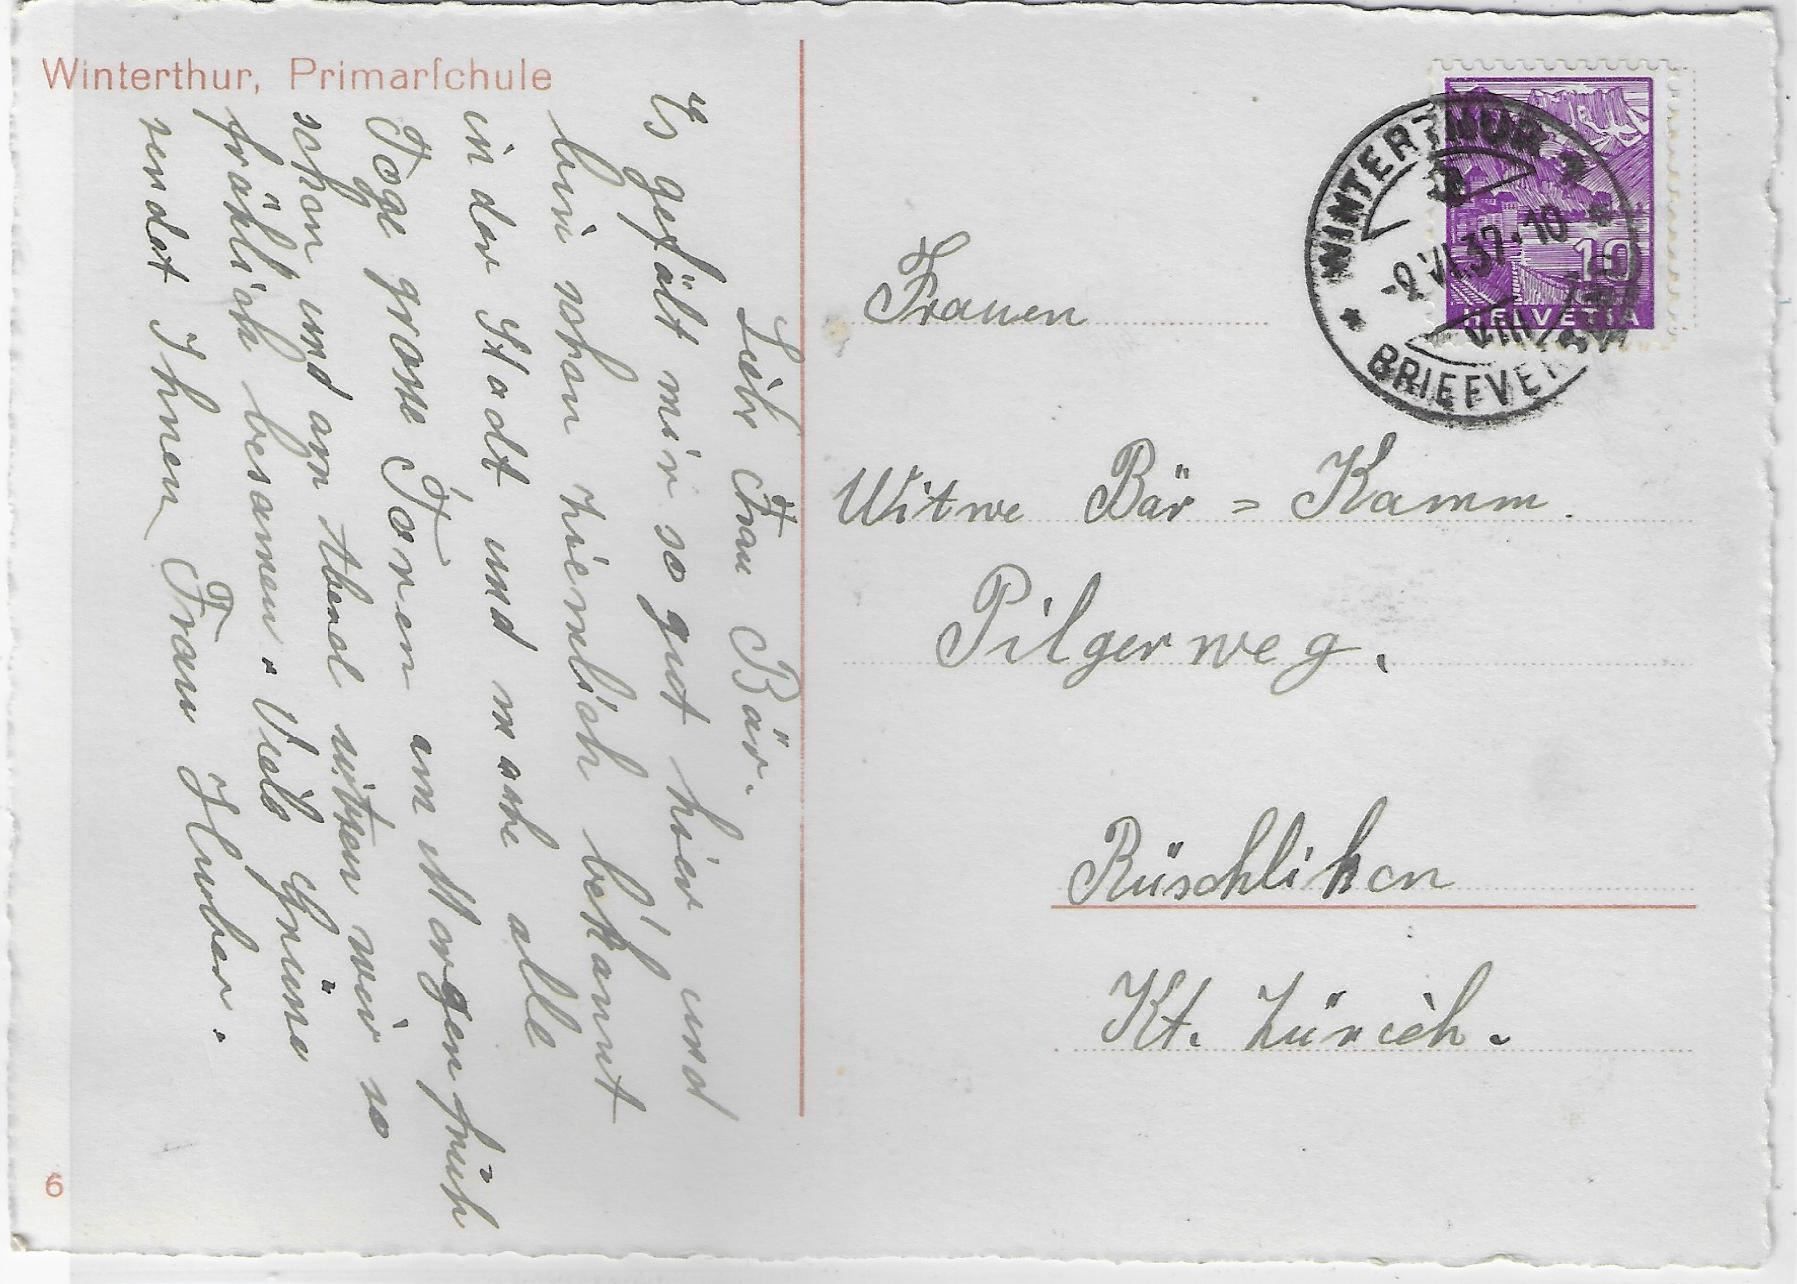 Winterthur, Primarſchule
Liebe Frau Bär.
Es gefält mir so gut hier und
bin schon ziemlich bekannt
in der Stadt und mache alle
Tage grosse Toren am Morgen früh
schon und am Abend sitzen wir so
fröhlich besamen. Viele Grüsse
sendet Ihnen Frau Huber.
6
Frauen
Witwe Bär = Kamm.
Pilgerweg.
Rüschlikon
Kt. Zürich.
WINTERTHUR
-2.VI.37.-10
BRIEFVER
10
HELVETIA